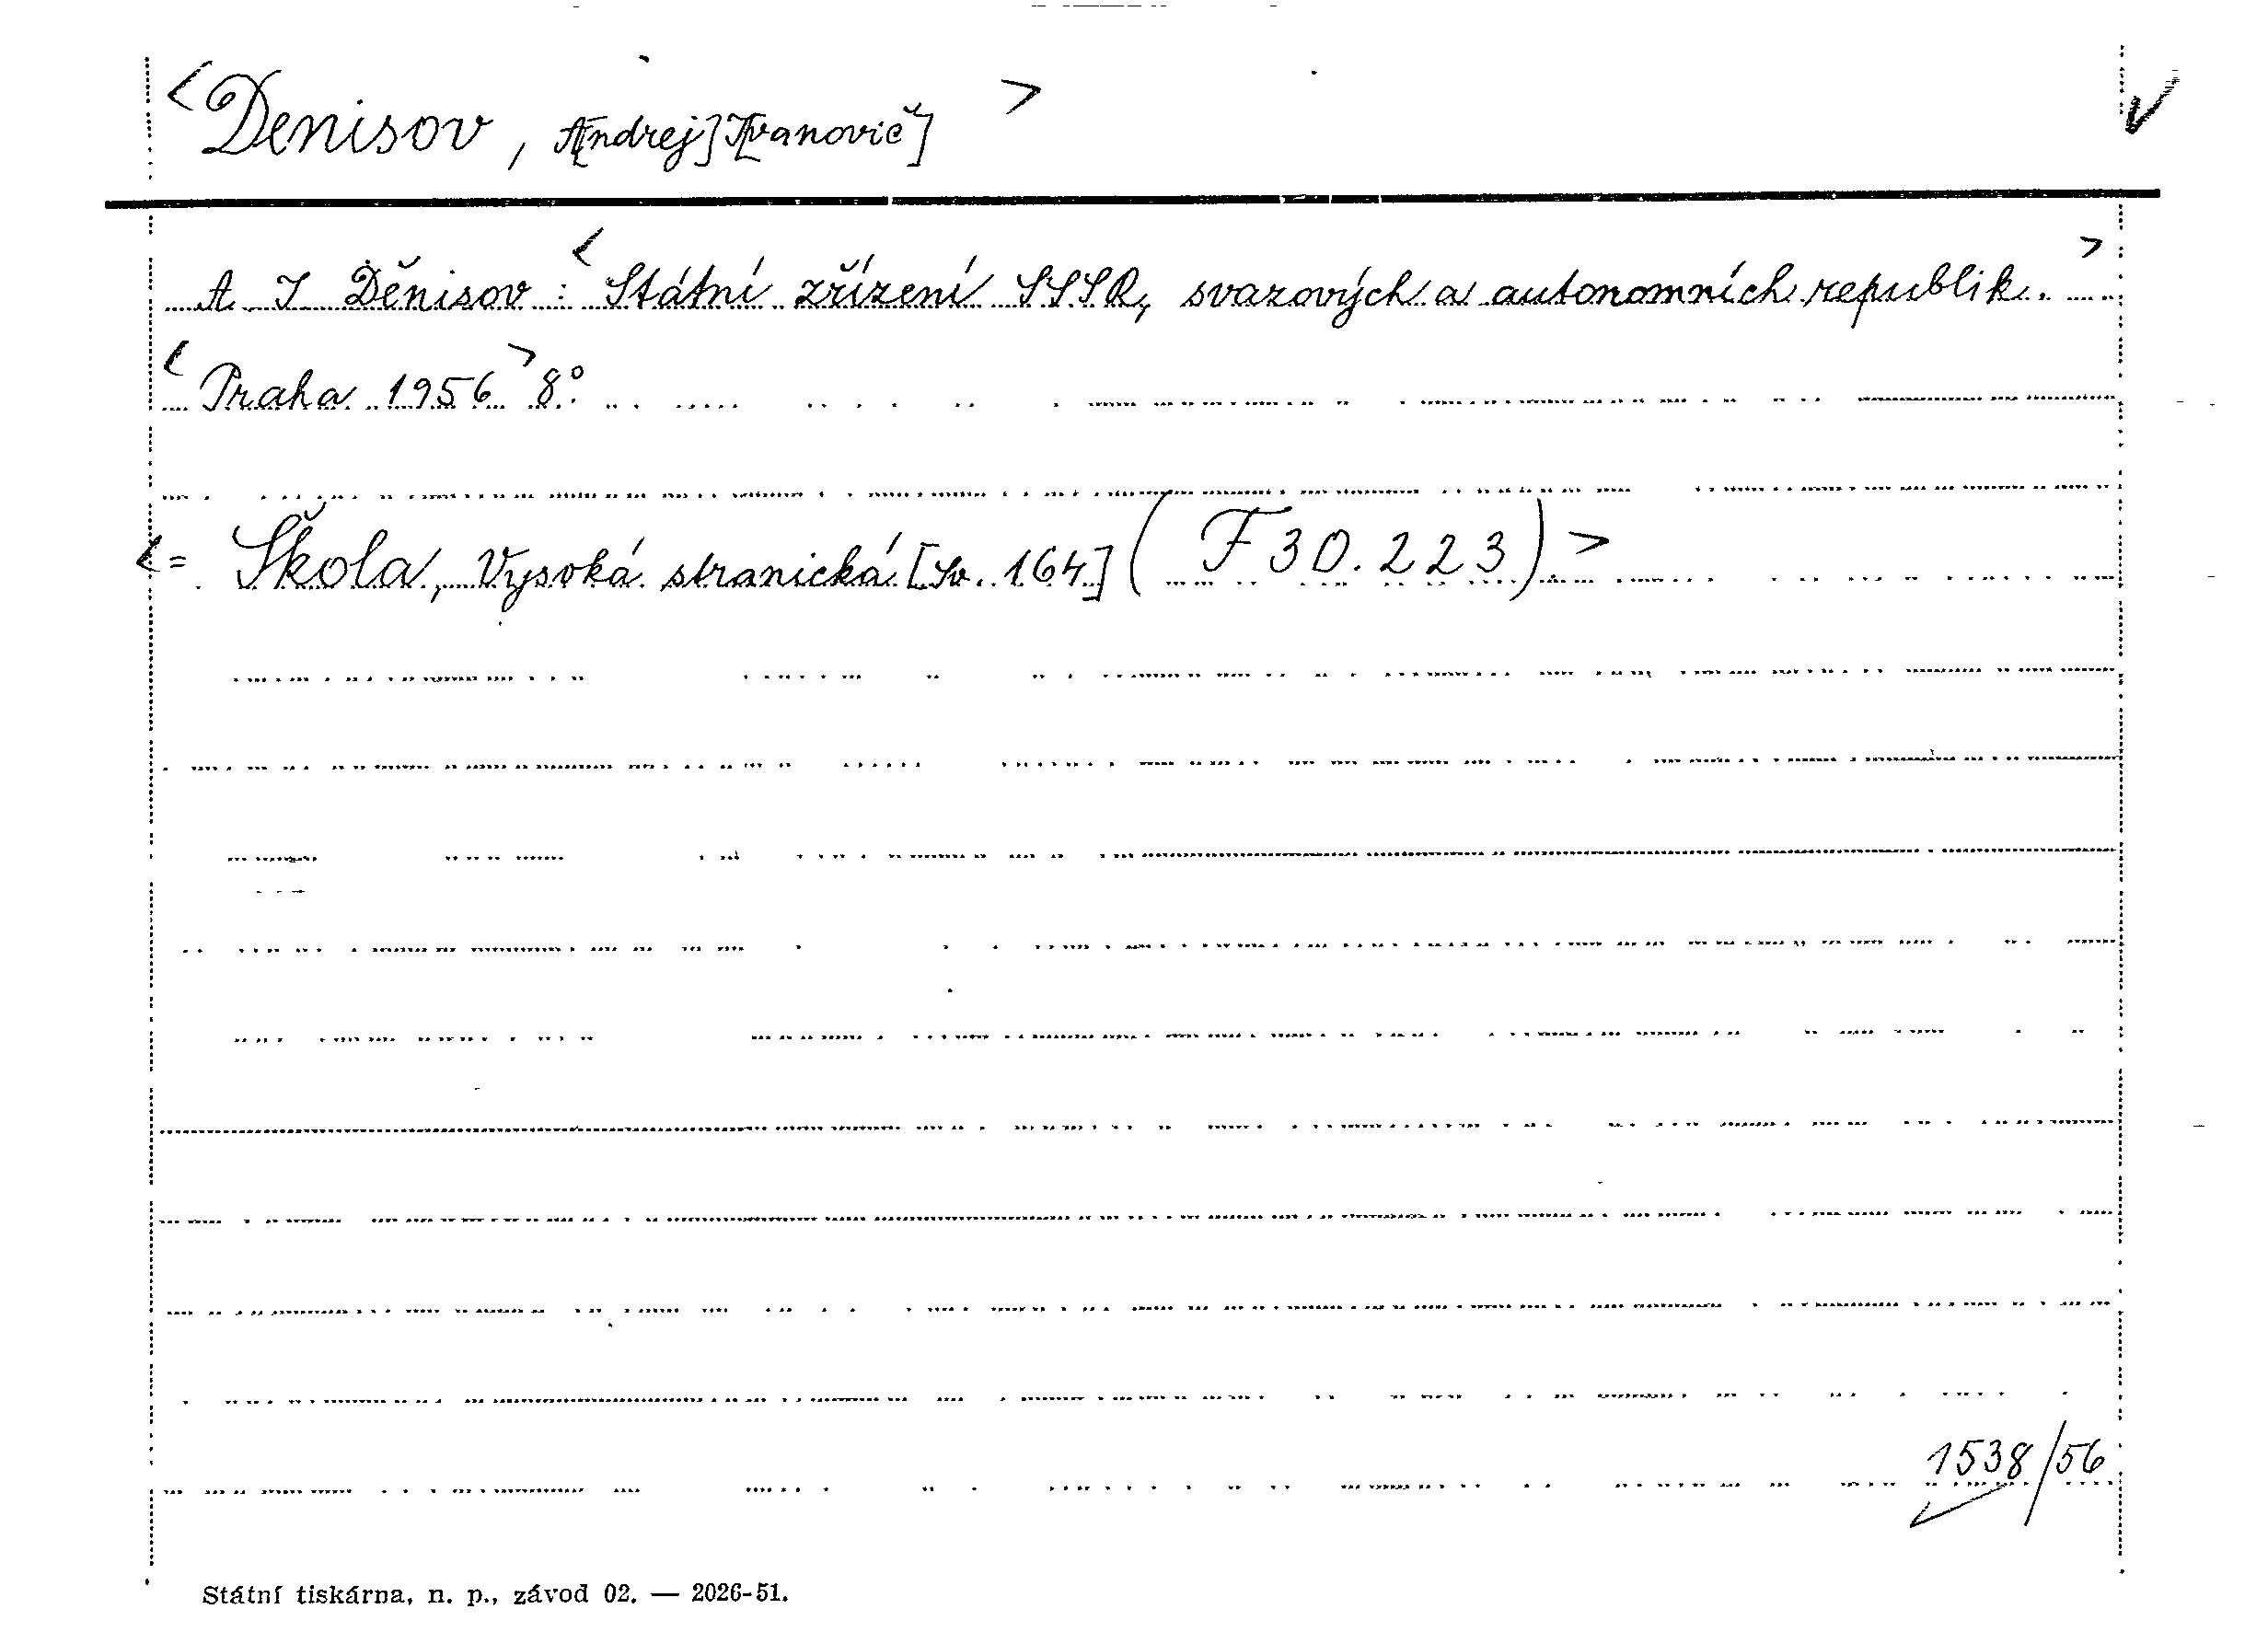 <Denisov, A[ndrej] I[vanovič] >
A I Děnisov: <Státní zřízení SSSR, svazových a autonomních republik. >
<Praha 1956> 8°.
<= Škola, Vysoká stranická [Sv. 164] (F 30.223) >
1538/56
Státní tiskárna, n. p., závod 02. — 2026-51.